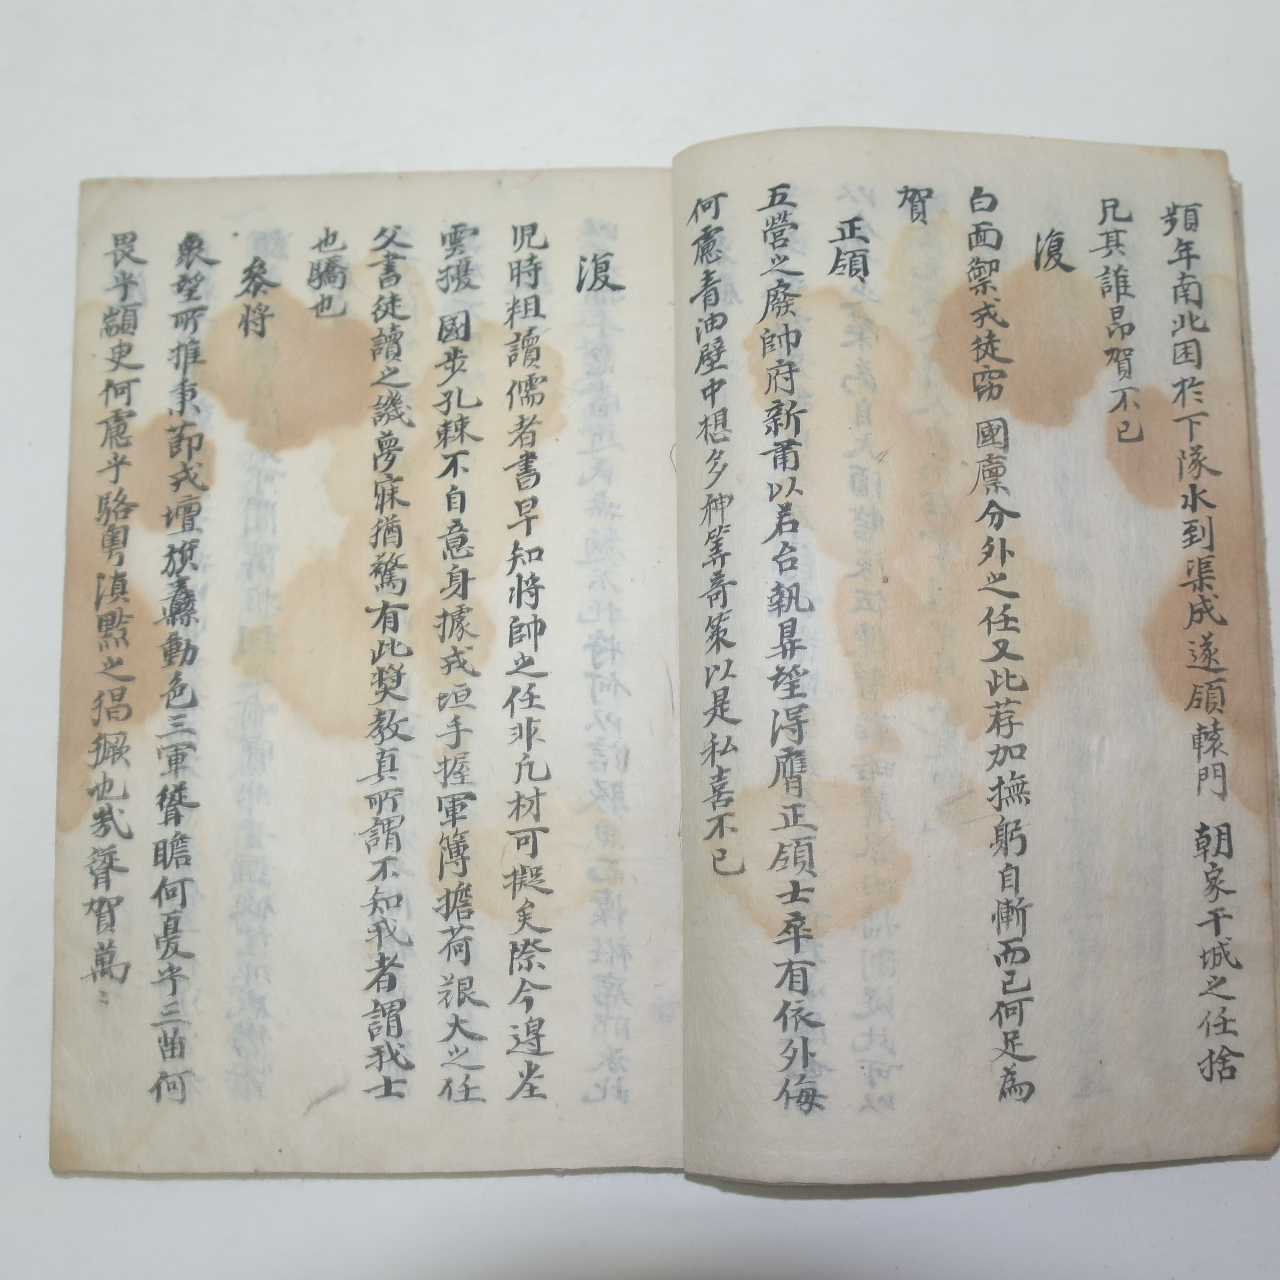 頻年南北困於下隊水到渠成遂領轅門 朝家干城之任捨
凡其誰昂賀不已
復
白面禦戎徒竊 國廩分外之任又此荐加撫躬自慚而已何足為
賀
正領
五營之廢帥府新甫以君台執昇望得膺正領士卒有依外侮
何慮青油壁中想多神筭奇策以是私喜不已
復
児時粗讀儒者書早知將帥之任非凡材可擬矣際今邉坐
雲擾 國步孔棘不自意身據戎垣手握軍簿擔荷艱大之任
父書徒讀之譏夢寐猶驚有此奬教真所謂不知我者謂我士
也驕也
叅將
衆望所推秉節戎壇旗纛動色三軍聳瞻何憂乎三苗何
畏乎顓臾何慮乎駱粤滇黔之猖獗也哉聳賀萬〻